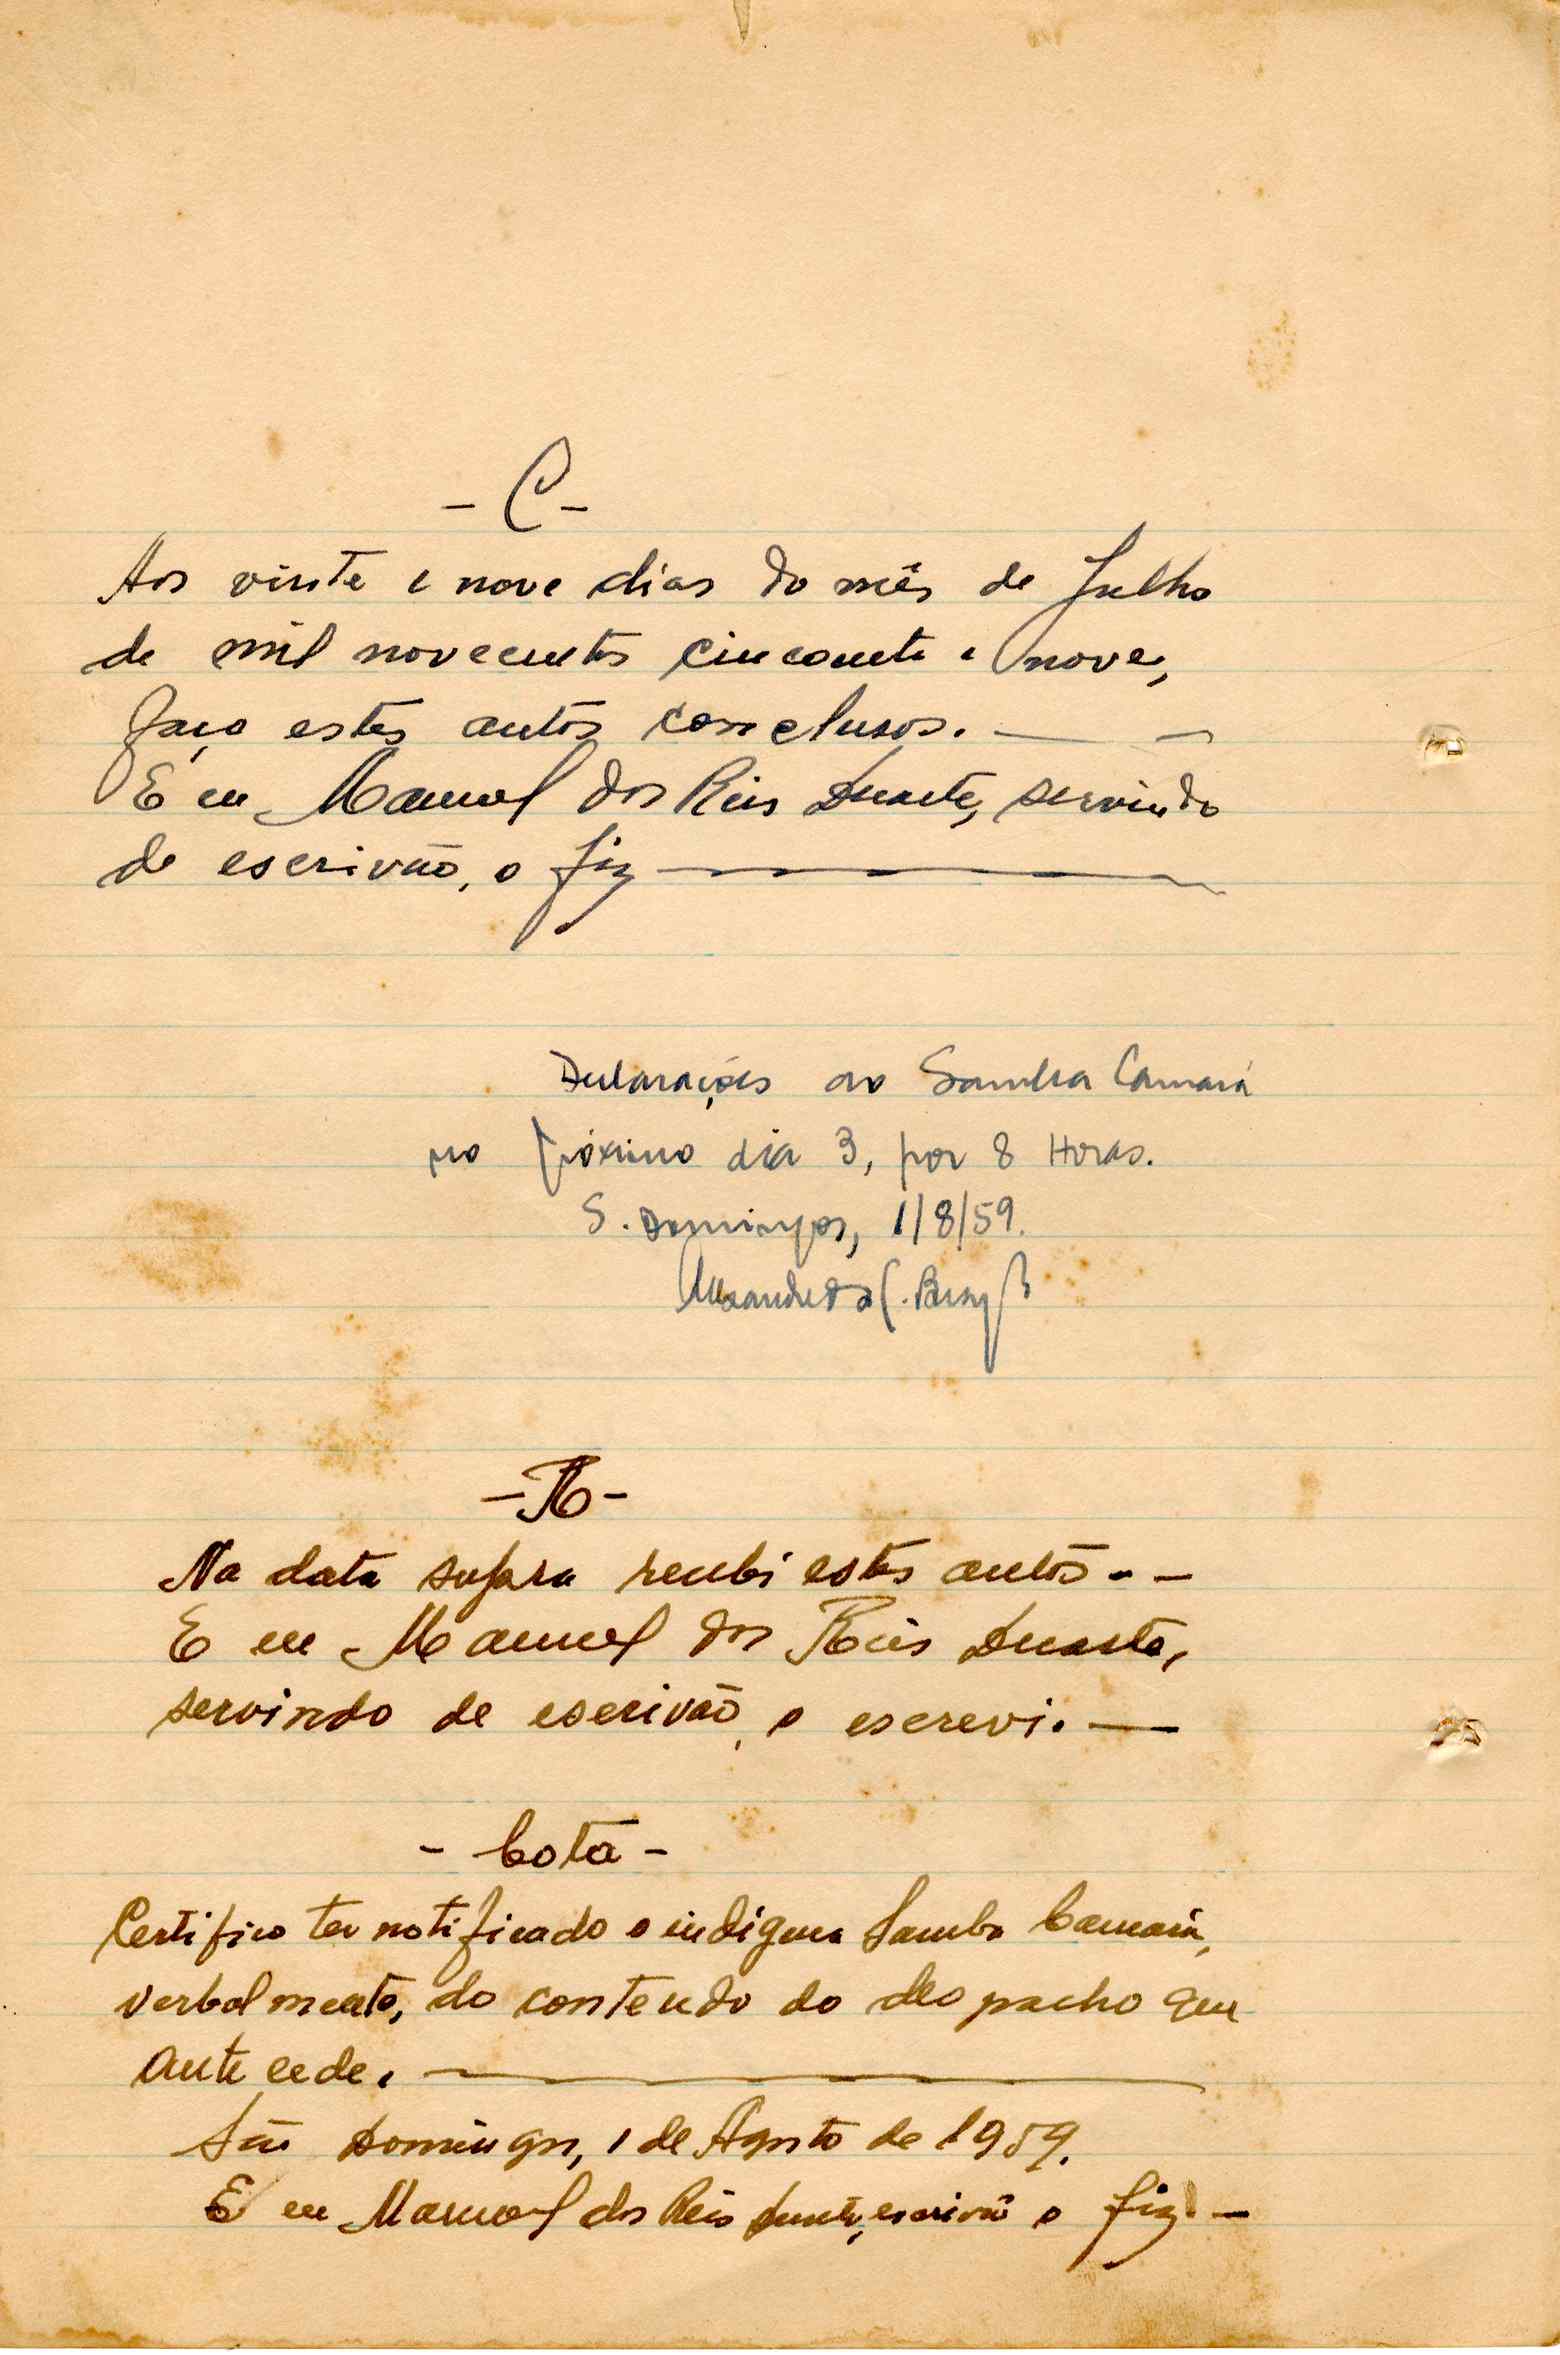 - C -
Aos vinte e nove dias do mês de Julho
de mil novecentos cincoenta e nove,
faço estes autos conclusos. — —
E eu Manuel dos Reis Duarte, servindo
de escrivão, o fiz —
Declarações ao Samba Camará
no próximo dia 3, por 8 Horas.
S. Domingos, 1/8/59.
- R -
Na data supra recebi estes autos. - -
E eu Manuel dos Reis Duarte,
servindo de escrivão, o escrevi. —
- Cota -
Certifico ter notificado o indígena Samba Camará,
verbalmente, do conteudo do despacho que
antecede. —
São Domingos, 1 de Agosto de 1959.
E eu Manuel dos Reis Duarte, escrivão o fiz. -